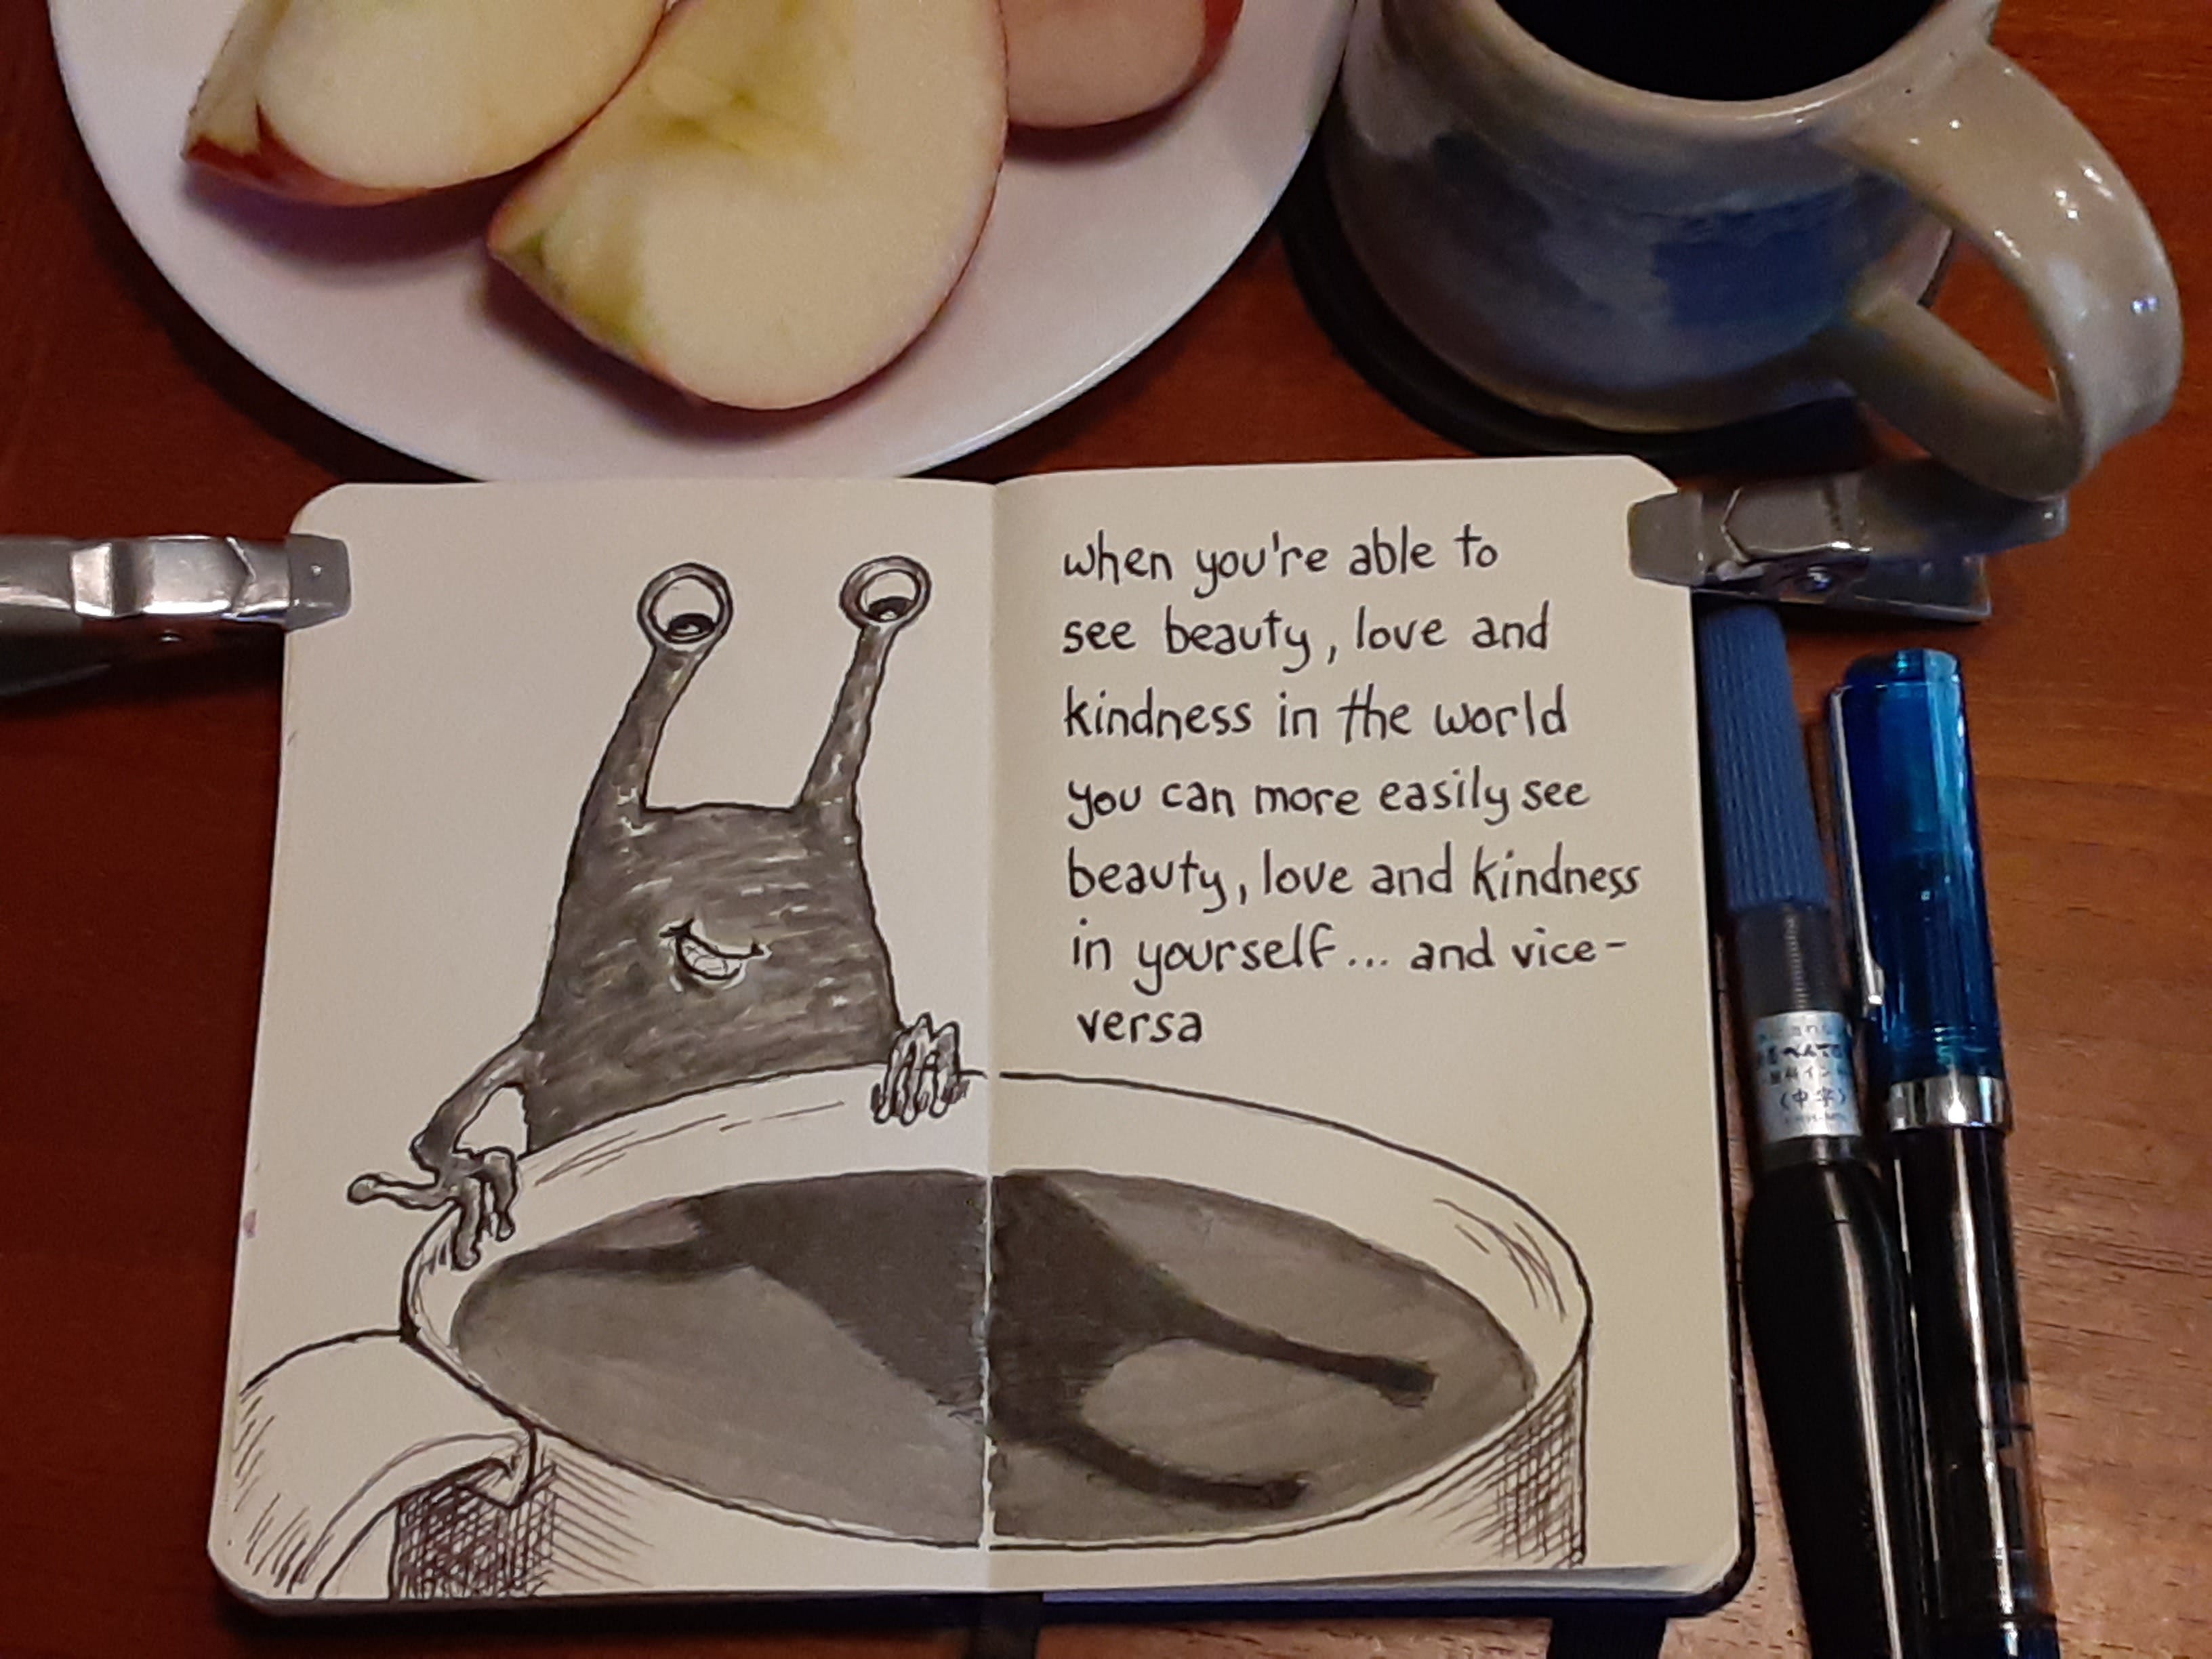 when you're able to
see beauty, love and
kindness in the world
you can more easily see
beauty, love and kindness
in yourself... and vice-
versa
(中字)